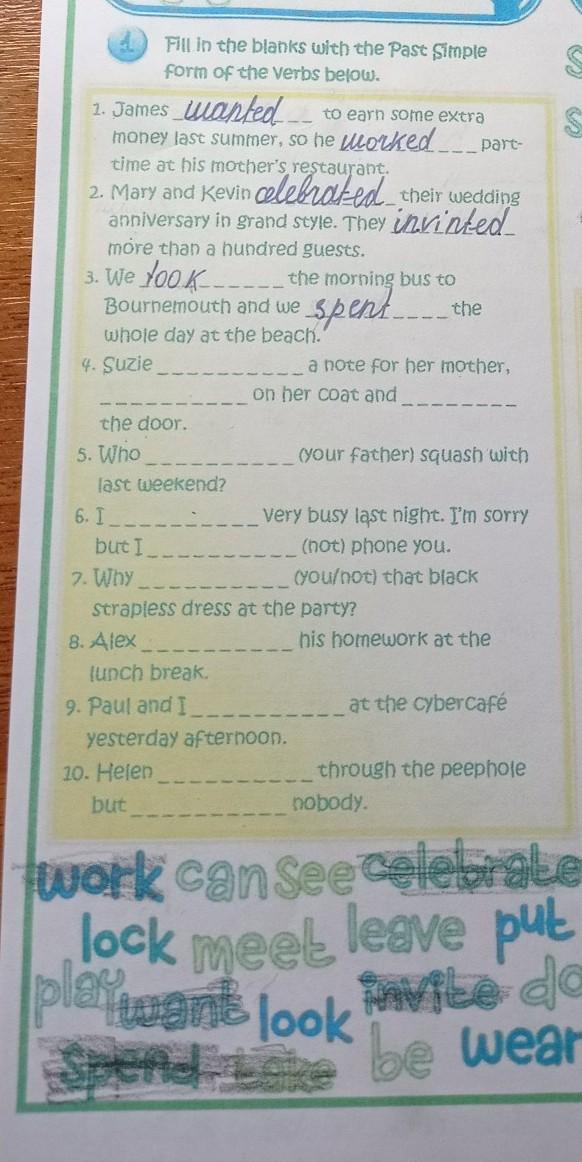 1 Fill in the blanks with the Past Simple
form of the verbs below.
1. James wanted to earn some extra
money last summer, so he worked part-
time at his mother's restaurant.
2. Mary and Kevin celebrated their wedding
anniversary in grand style. They invinted
more than a hundred guests.
3. We took the morning bus to
Bournemouth and we spent the
whole day at the beach.
4. Suzie __________ a note for her mother,
__________ on her coat and ________
the door.
5. Who __________ (your father) squash with
last weekend?
6. I __________ very busy last night. I'm sorry
but I __________ (not) phone you.
7. Why __________ (you/not) that black
strapless dress at the party?
8. Alex __________ his homework at the
lunch break.
9. Paul and I __________ at the cybercafé
yesterday afternoon.
10. Helen __________ through the peephole
but __________ nobody.
work can see celebrate
lock meet leave put
play want look invite do
spend take be wear